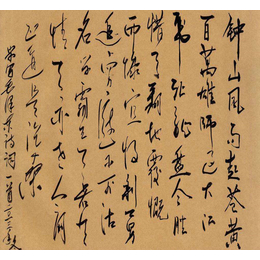 钟山风雨起苍黄
百萬雄师过大江
虎踞龙盘今胜
昔天翻地覆慨
而慷宜将剩勇
追穷寇不可沽
名学霸王天若有
情天亦老人间
正道是沧桑
学习毛泽东诗词一首